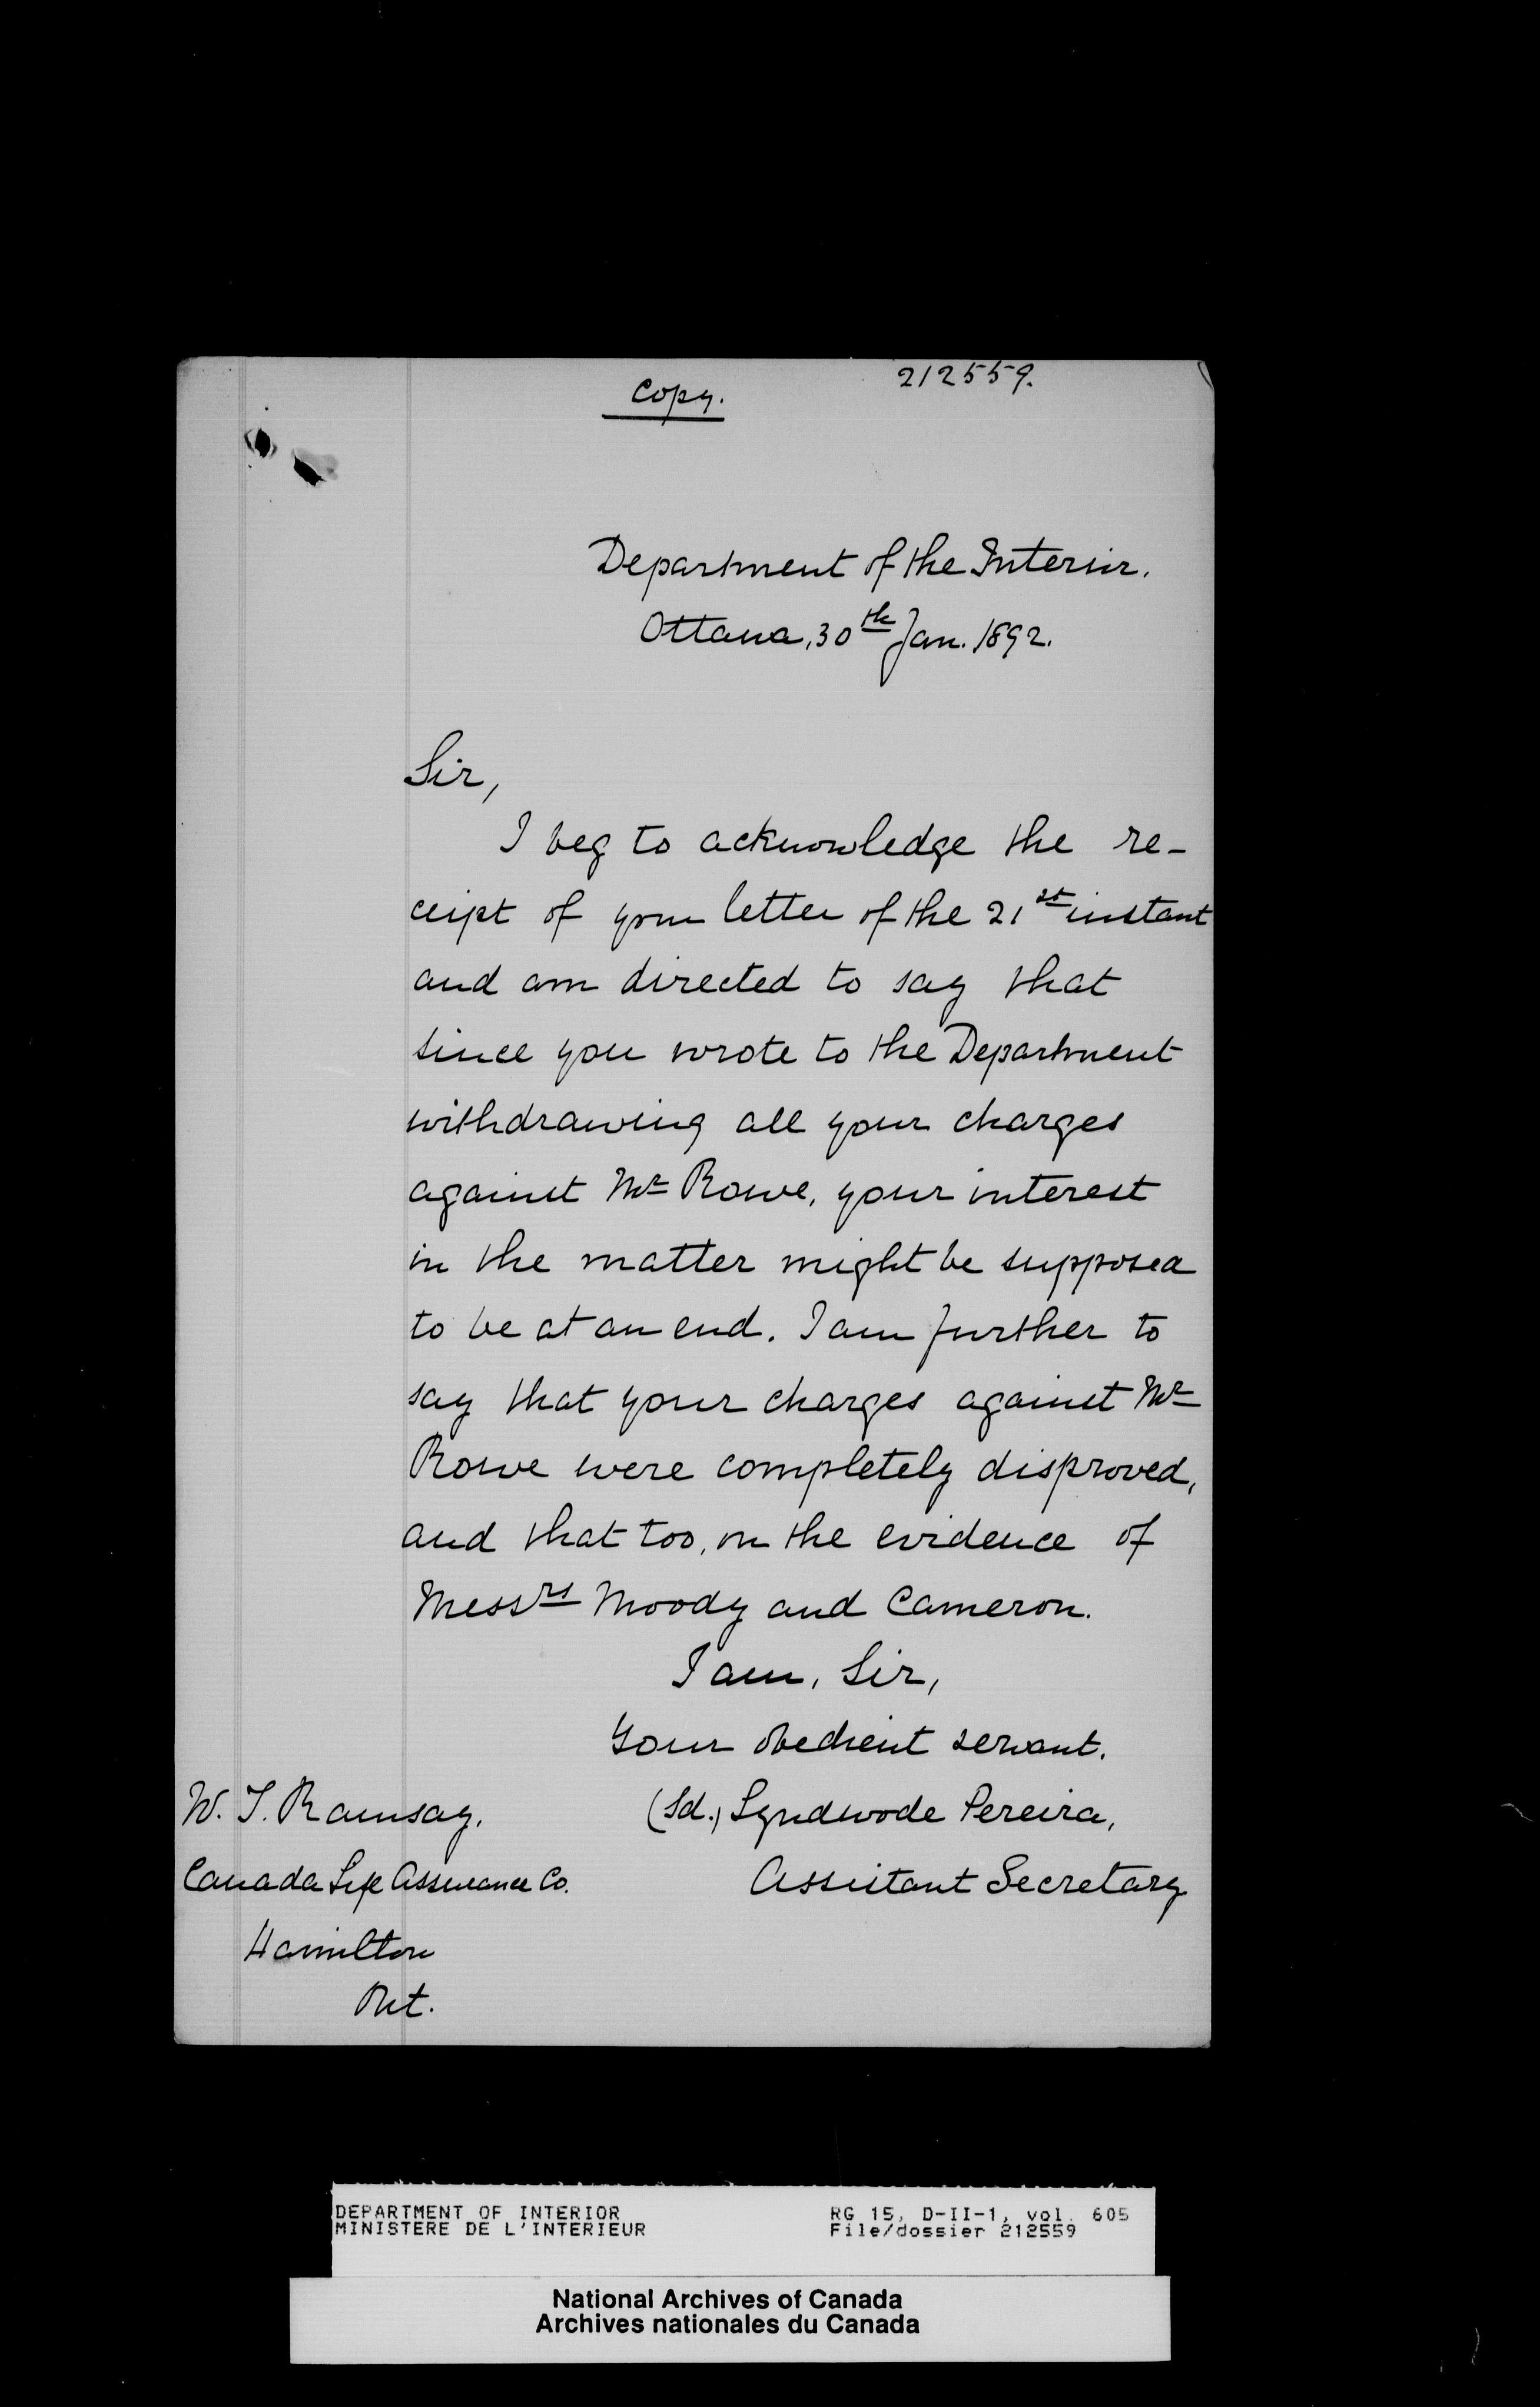 212559.
Copy.
Department of the Interior.
Ottawa, 30th Jan. 1892.
Sir,
I beg to acknowledge the re-
ceipt of your letter of the 21st instant
and am directed to say that
since you wrote to the Department
withdrawing all your charges
against Mr Rowe, your interest
in the matter might be supposed
to be at an end. I am further to
say that your charges against Mr
Rowe were completely disproved,
and that too, on the evidence of
Messrs Moody and Cameron.
I am, Sir,
Your obedient servant.
(Sd.) Lyndwode Pereira,
Assistant Secretary
W. T. Ramsay,
Canada Life Assurance Co.
Hamilton
Ont.
DEPARTMENT OF INTERIOR RG 15, D-II-1, vol. 605
MINISTERE DE L'INTERIEUR File/dossier 212559
National Archives of Canada
Archives nationales du Canada